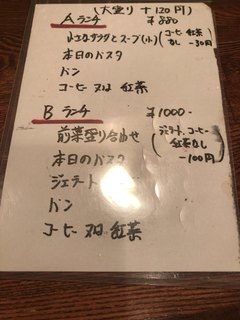 (大盛り +120円)
A ランチ ¥880
小さなサラダとスープ(小) (コーヒー紅茶なし -30円)
本日のパスタ
パン
コーヒー 又は 紅茶
B ランチ ¥1000-
前菜盛り合わせ (ジェラート、コーヒー紅茶なし -100円)
本日のパスタ
ジェラート
パン
コーヒー 又は 紅茶